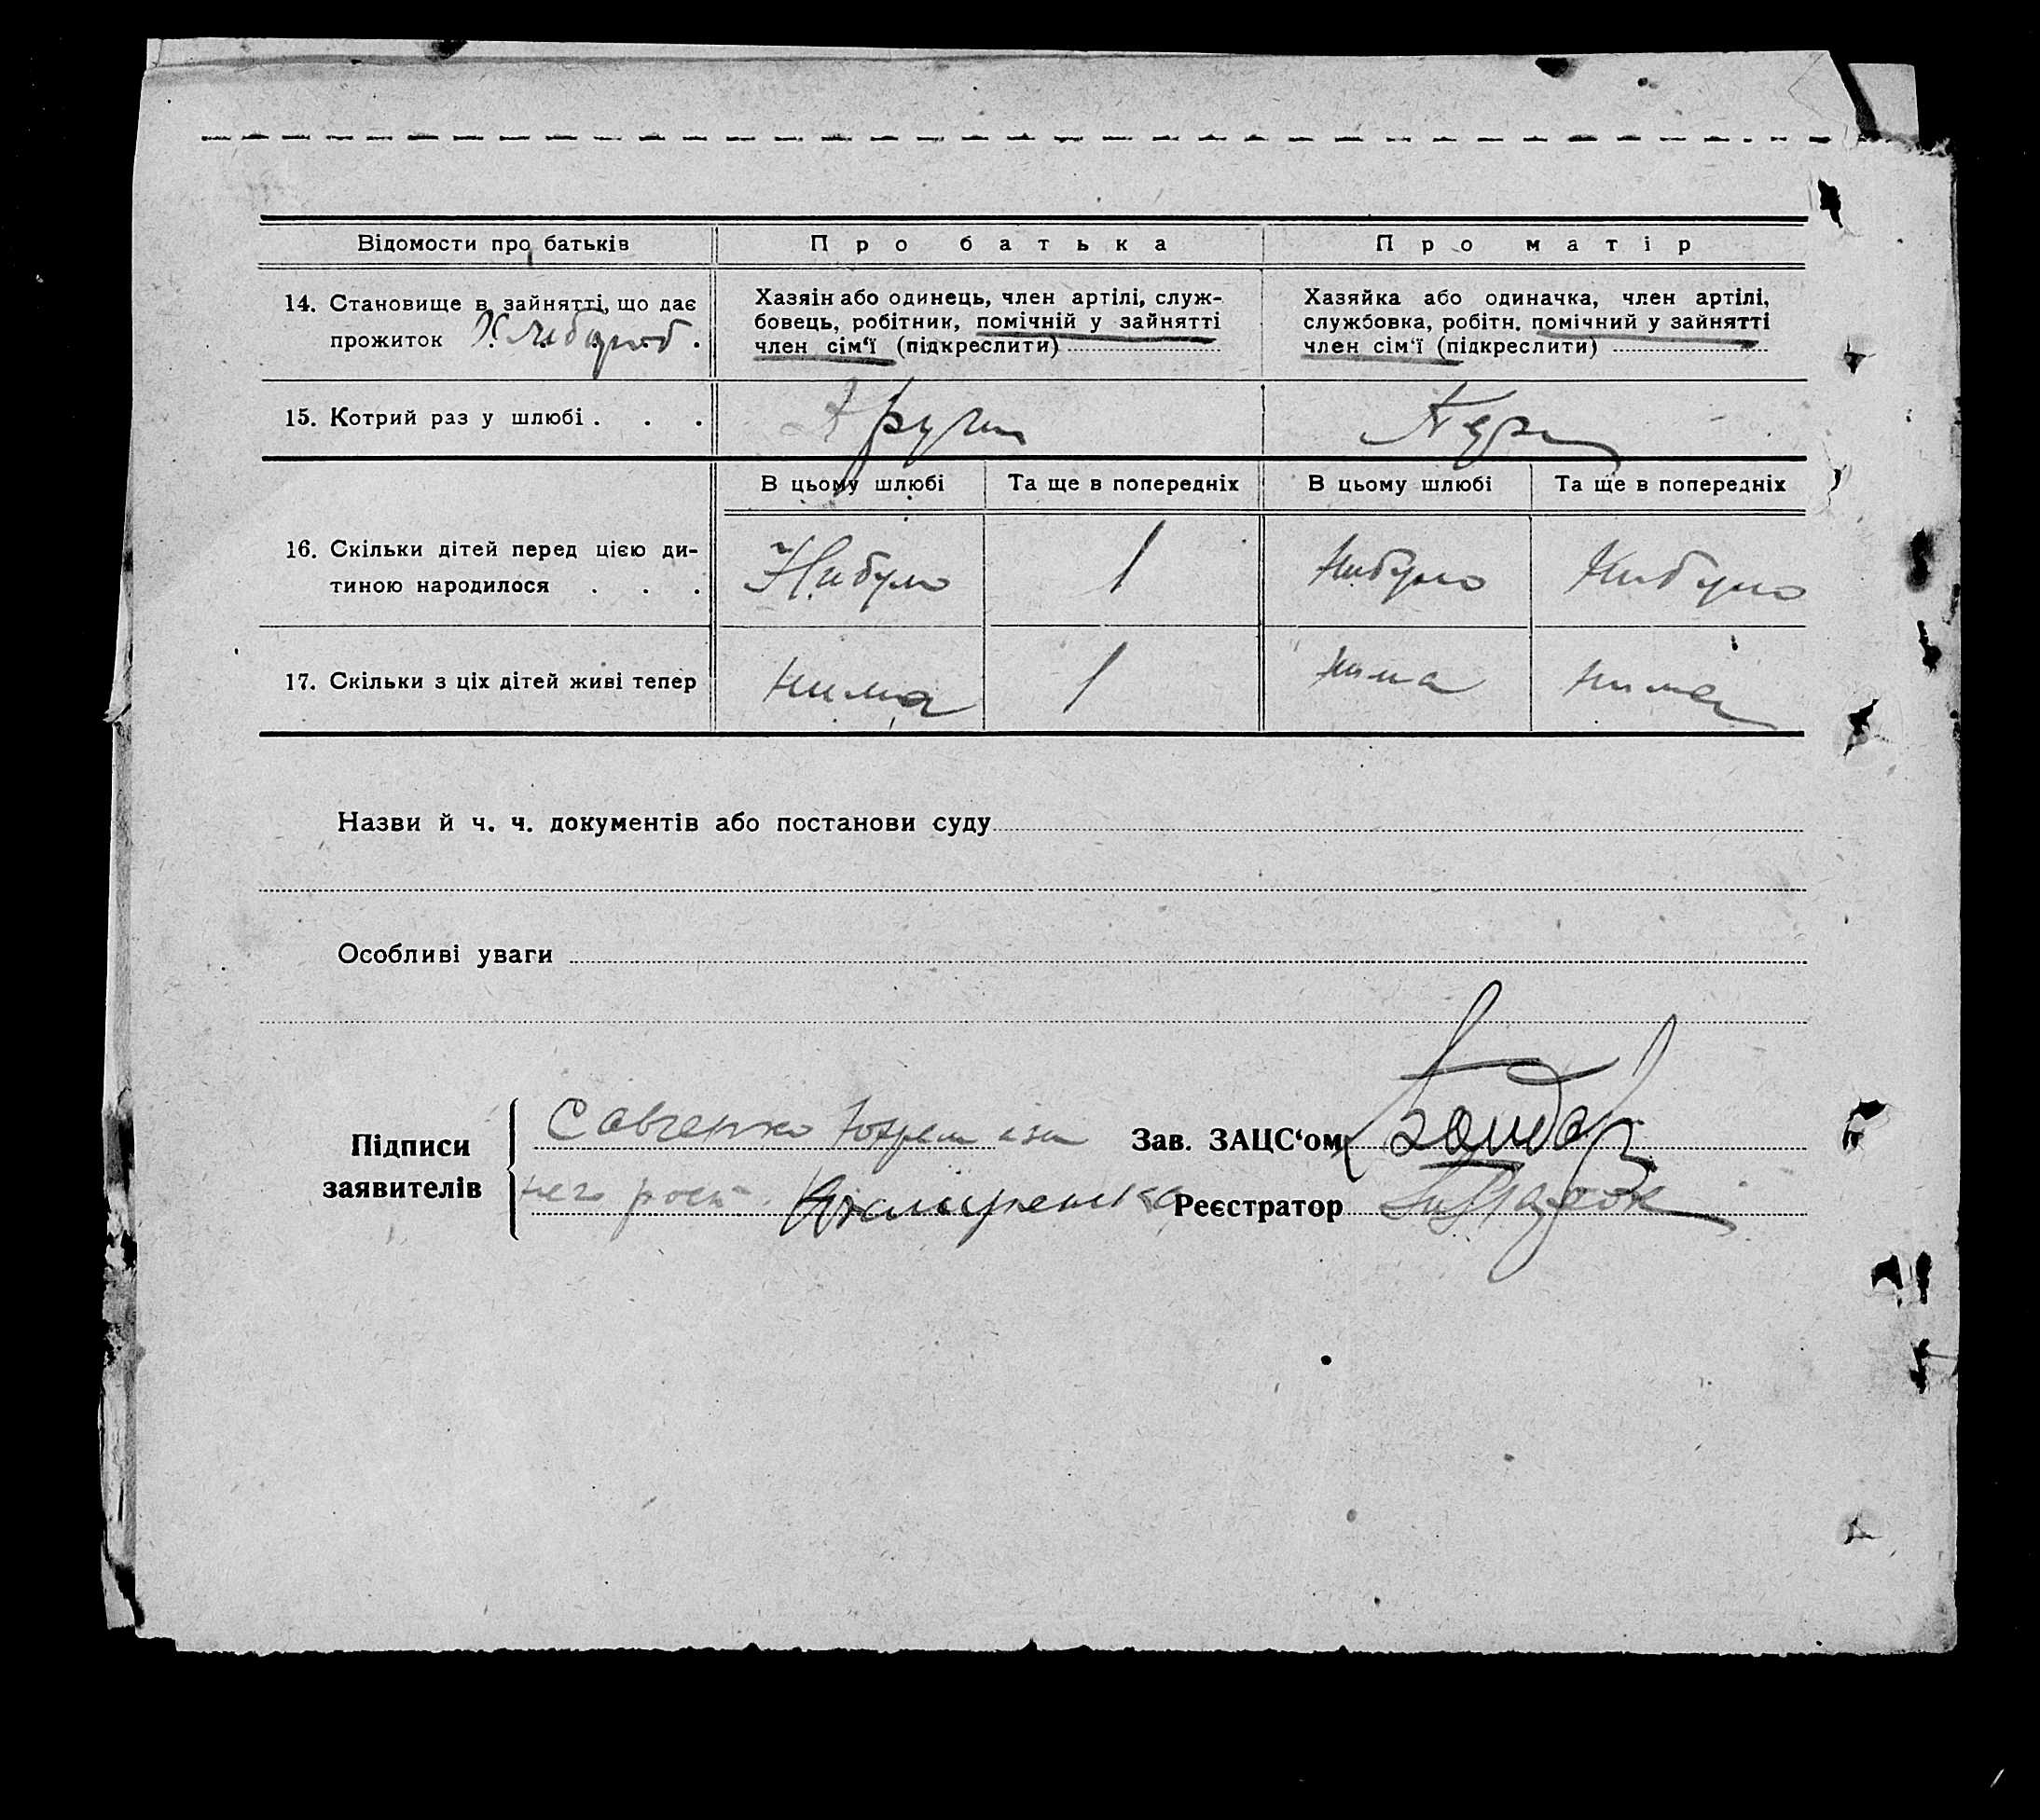 Відомости про батьків
Про батька
Про матір
14. Становище в зайнятті, що дає
прожиток Хлібороб.
Хазяін або одинець, член артілі, служ-
бовець, робітник, помічній у зайнятті
член сім‘ї (підкреслити)
Хазяйка або одиначка, член артілі,
службовка, робітн. помічний у зайнятті
член сім‘ї (підкреслити)
15. Котрий раз у шлюбі . . .
Другий
В цьому шлюбі
Та ще в попередніх
В цьому шлюбі
Та ще в попередніх
16. Скільки дітей перед цією ди-
тиною народилося . . .
Нибуло
1
Нибуло
Нибуло
17. Скільки з ціх дітей живі тепер
нима
1
нима
нима
Назви й ч. ч. документів або постанови суду
Особливі уваги
Підписи
заявителів
Савченко
Зав. ЗАЦС‘ом
него
Реєстратор